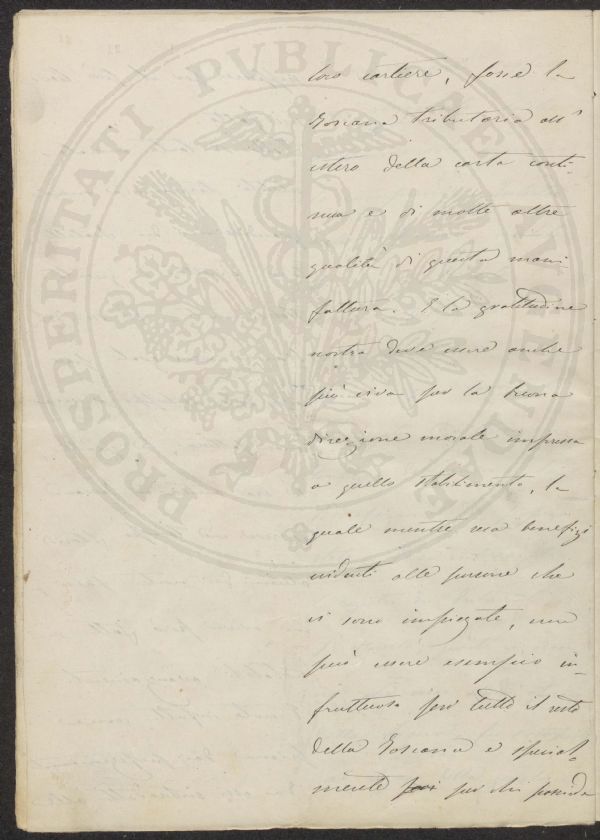 loro cartiere, fosse la
Toscana tributaria all'
estero della carta conti-
nua e di molte altre
qualità di questa mani
fattura. E la gratitudine
nostra deve essere anche
più viva per la buona
direzione morale impressa
a quello Stabilimento, la
quale mentre reca benefizi
evidenti alle persone che
vi sono impiegate, non
può essere esempio in-
fruttuoso per tutto il resto
della Toscana e special-
mente per chi possiede
PROSPERITATI PVBLICAE AVGENDAE